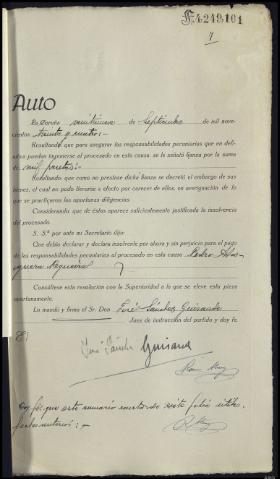 F.4.249.101
7
Auto
En Gandía veintinueve de Septiembre de mil nove-
cientos treinta y cuatro:-
Resultando que para asegurar las responsabilidades pecuniarias que en defi-
nitiva puedan imponerse al procesado en esta causa, se le señaló fianza por la suma
de mil pesetas:-
Resultando que como no prestase dicha fianza se decretó el embargo de sus
bienes, el cual no pudo llevarse a efecto por carecer de ellos, en averiguación de lo
que se practicaron las oportunas diligencias.
Considerando que de éstas aparece suficientemente justificada la insolvencia
del procesado.
S. S.ª por ante mi Secretario dijo:
Que debía declarar y declara insolvente por ahora y sin perjuicio para el pago
de las responsabilidades pecuniarias al procesado en esta causa Pedro
Consúltese esta resolución con la Superioridad a la que se eleva esta pieza
oportunamente.
Lo mandó y firma el Sr. Don José Sánchez Guisande
Juez de instrucción del partido y doy fe.
José Sánchez Guisande
Doy fe: que este sumario consta de siete folios útiles.